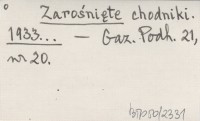 Zarośnięte chodniki.
1933... — Gaz. Podh. 21,
nr 20.